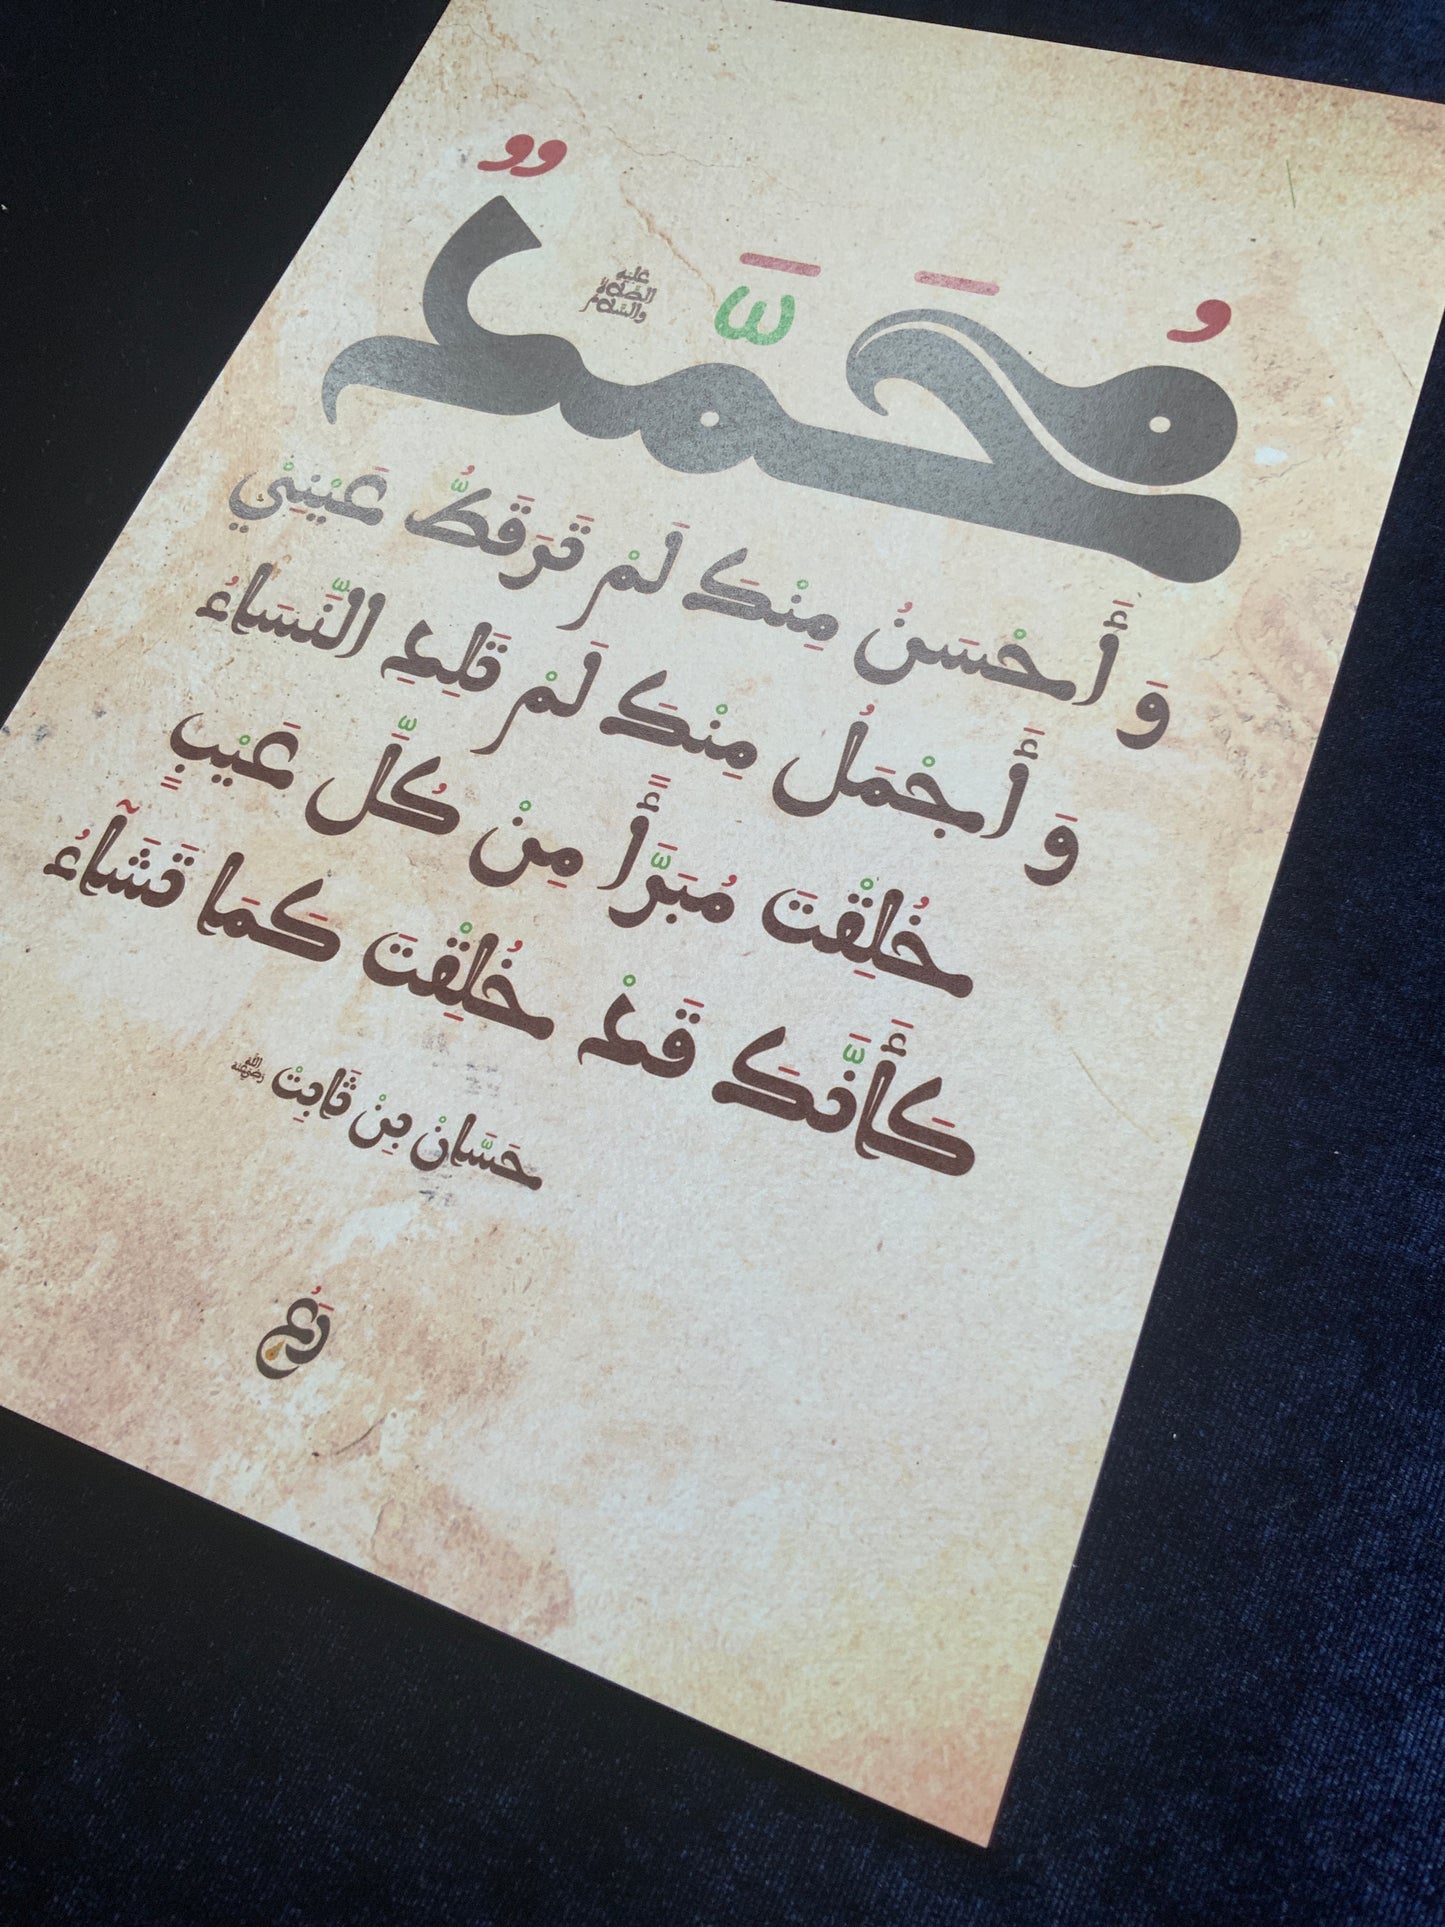 مُحَمَّدٌ
عليه
الصلاة
والسلام
وَ أَحْسَنُ مِنْكَ لَمْ تَرَ قَطُّ عَيْنِيْ
وَ أَجْمَلُ مِنْكَ لَمْ تَلِدِ النَّسَاءُ
خُلِقْتَ مُبَرَّأً مِنْ كُلِّ عَيْبٍ
كَأَنَّكَ قَدْ خُلِقْتَ كَمَا تَشَآءُ
حَسَّانْ بِنْ ثَابِتْ